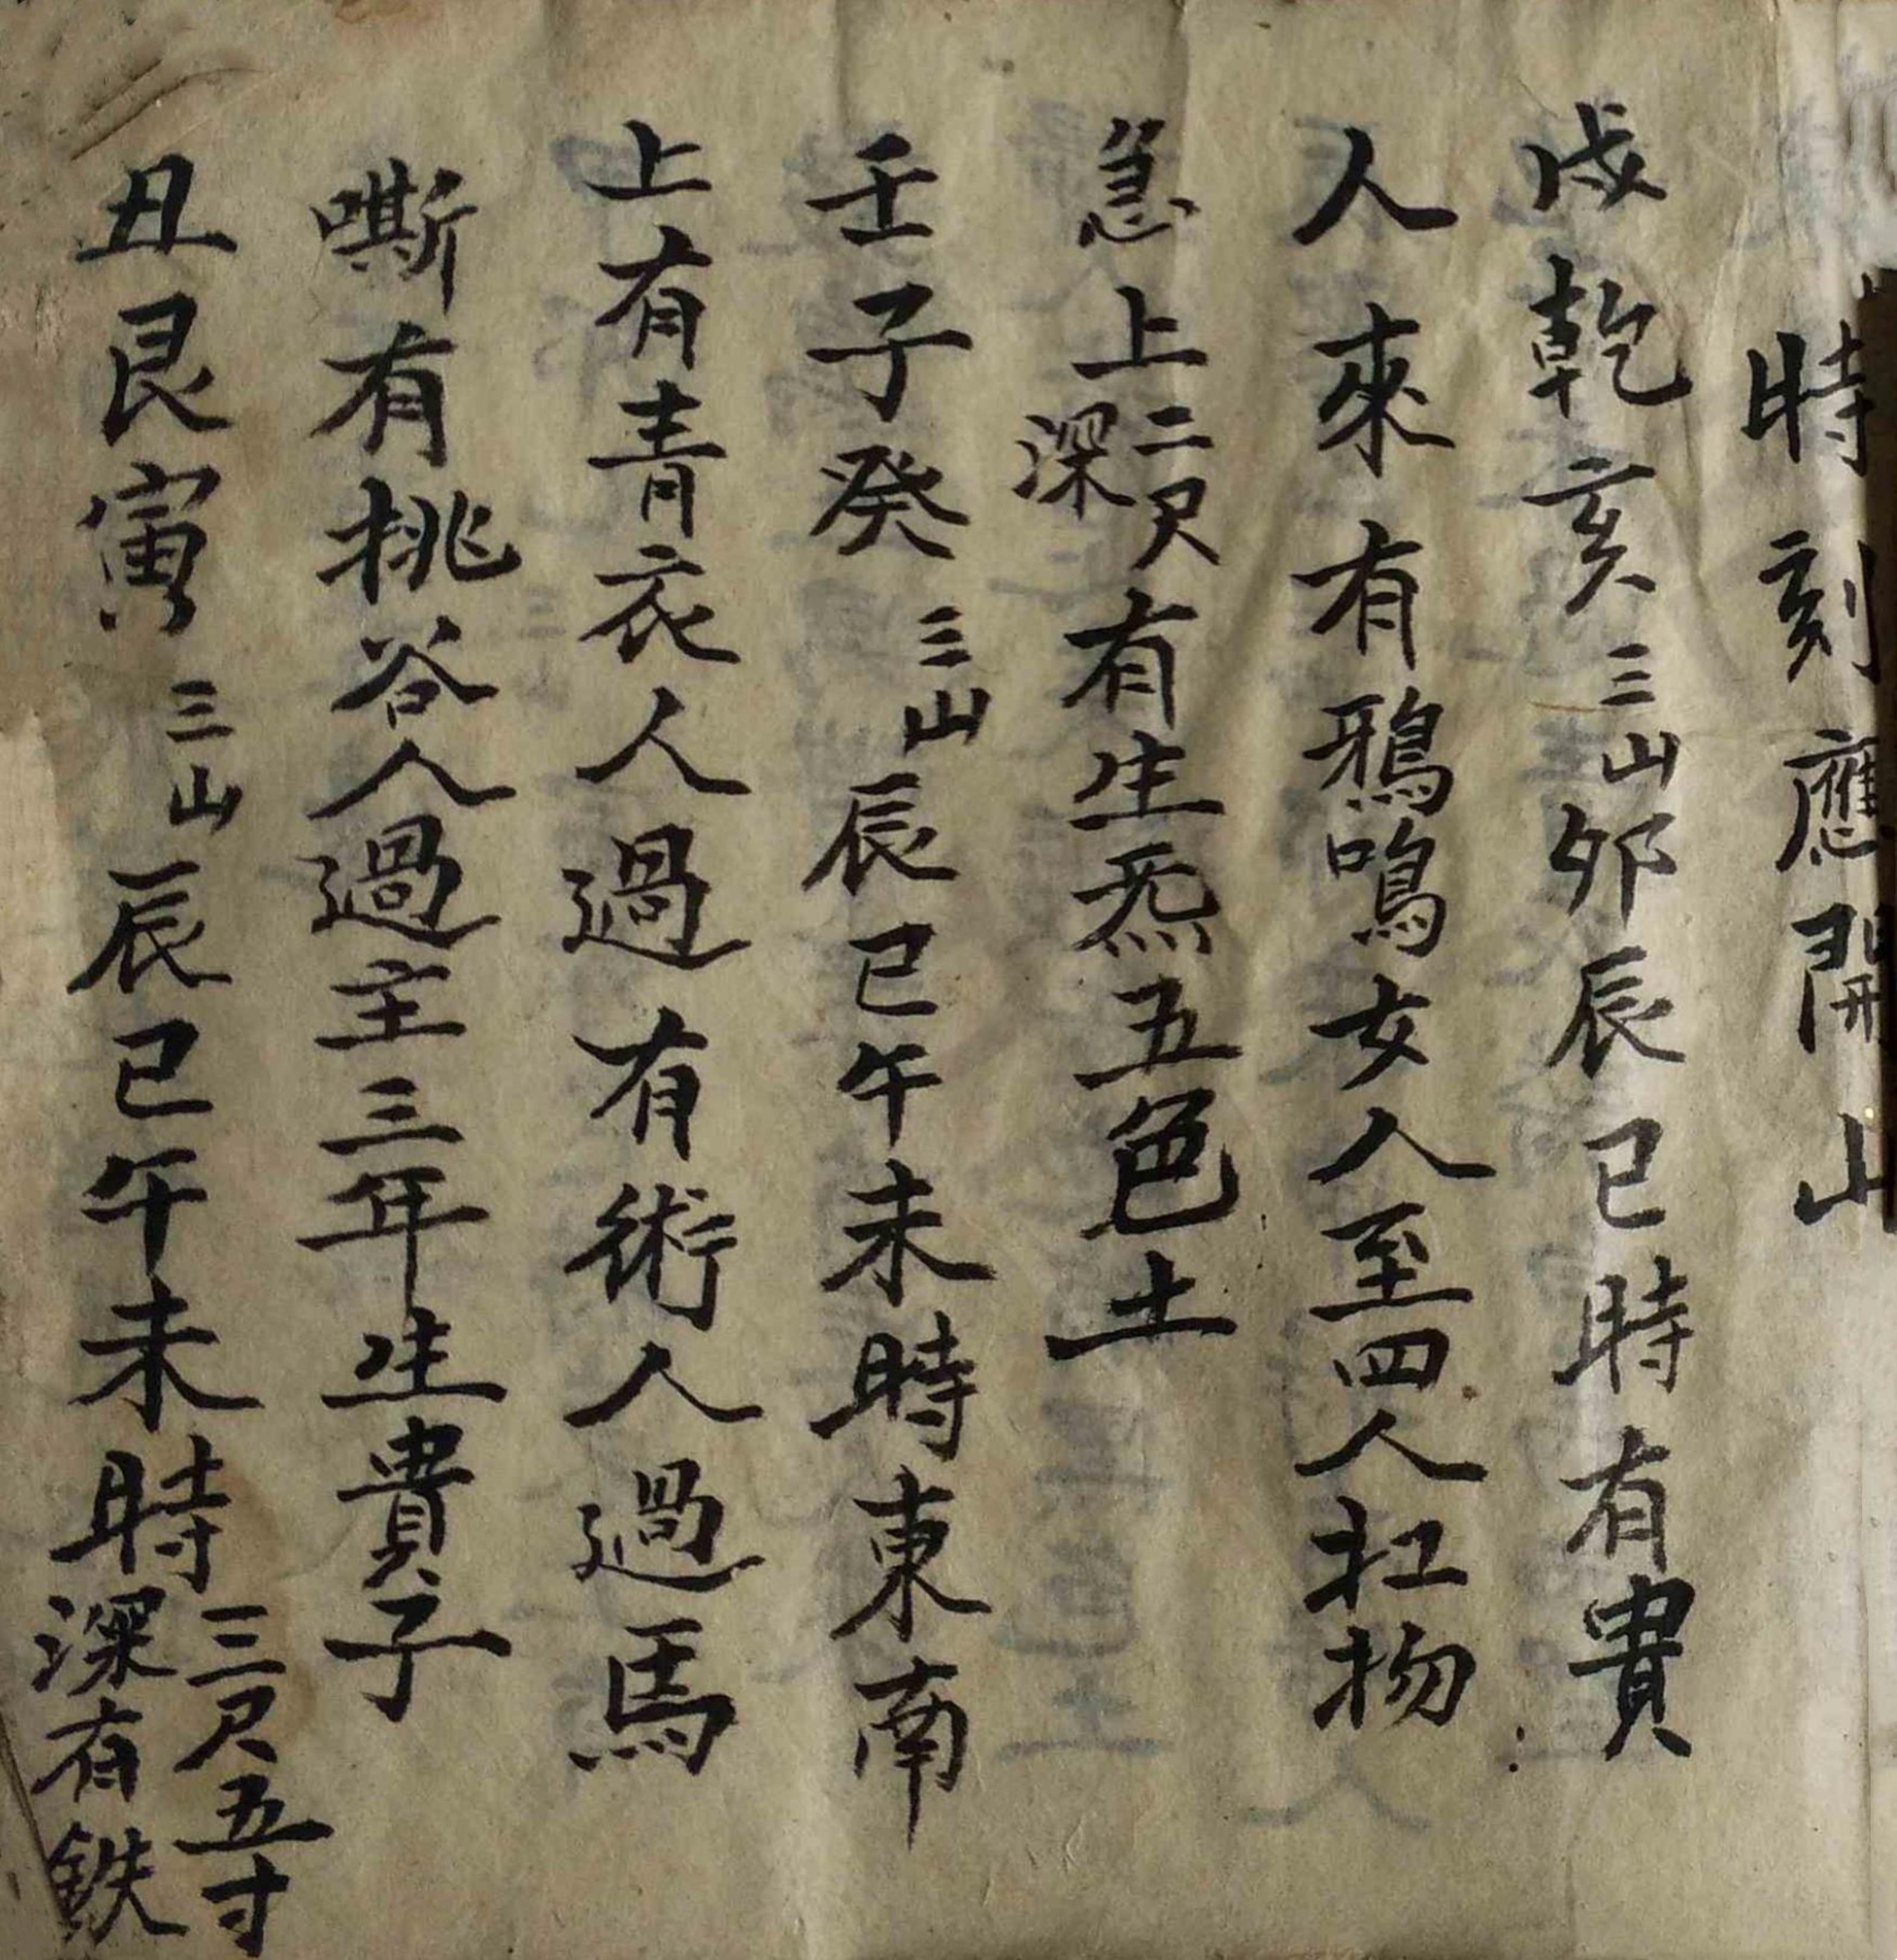 時刻應開山
戌乾亥三山夘辰巳時有貴
人來有鴉鳴女人至四人扛物
急上二尺深有生炁五色土
壬子癸三山辰巳午未時東南
上有青衣人過有術人過馬
嘶有挑谷人過主三年生貴子
丑艮寅三山辰巳午未時三尺五寸深有鉄